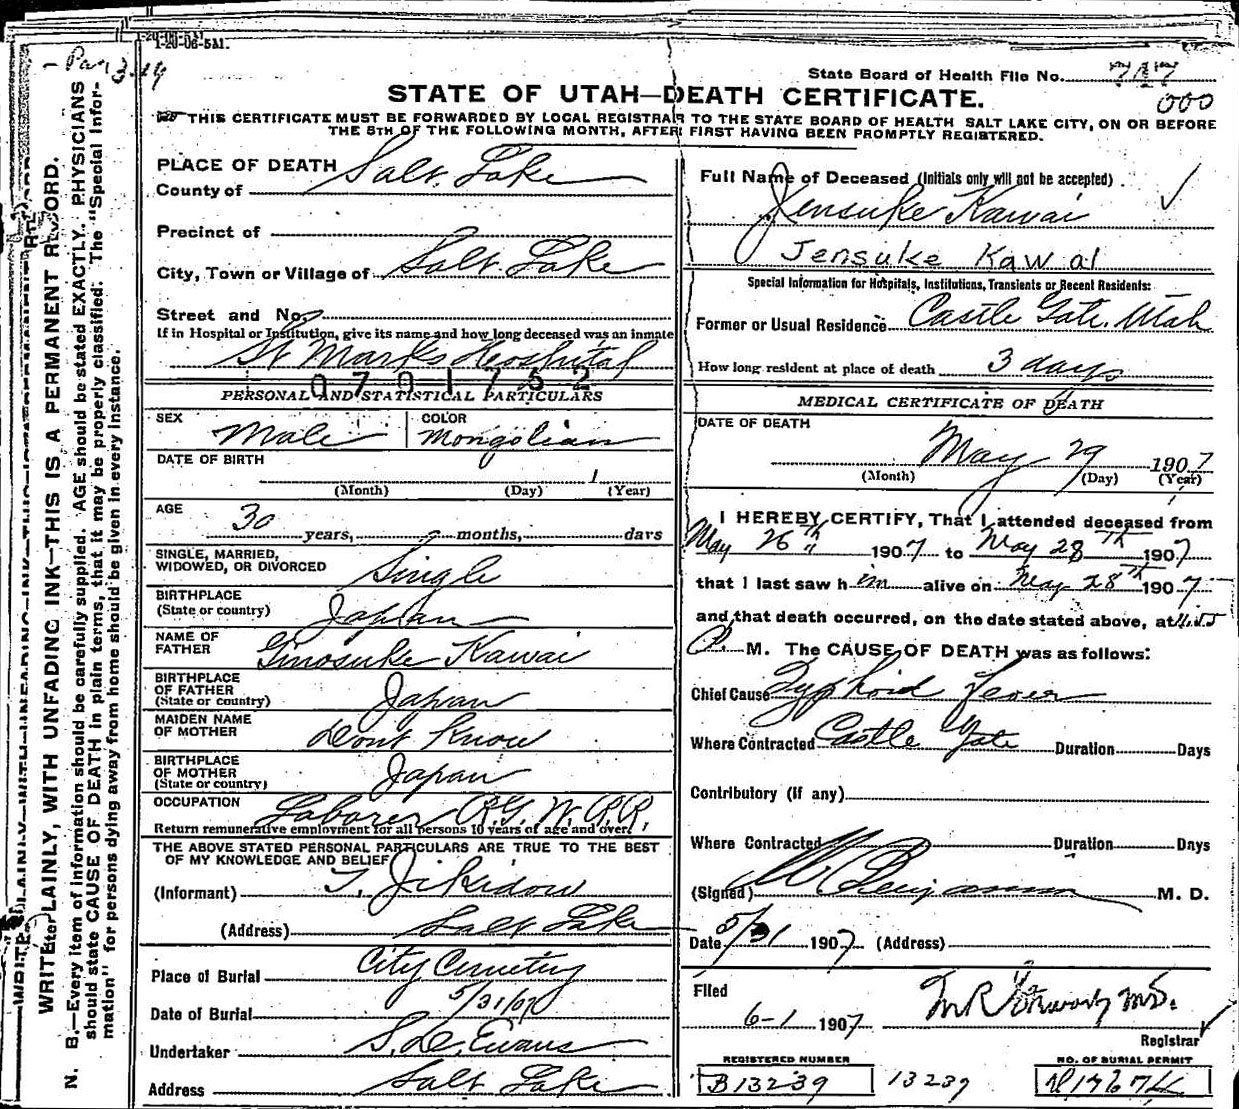 1-20-06-5M.
State Board of Health File No. 717
000
STATE OF UTAH—DEATH CERTIFICATE.
THIS CERTIFICATE MUST BE FORWARDED BY LOCAL REGISTRAR TO THE STATE BOARD OF HEALTH SALT LAKE CITY, ON OR BEFORE
THE 5TH OF THE FOLLOWING MONTH, AFTER FIRST HAVING BEEN PROMPTLY REGISTERED.
WRITE PLAINLY, WITH UNFADING INK—THIS IS A PERMANENT RECORD.
N. B.—Every item of information should be carefully supplied. AGE should be stated EXACTLY. PHYSICIANS
should state CAUSE OF DEATH in plain terms, that it may be properly classified. The "Special Infor-
mation" for persons dying away from home should be given in every instance.
PLACE OF DEATH
County of Salt Lake
Precinct of
City, Town or Village of Salt Lake
Street and No.
If in Hospital or Institution, give its name and how long deceased was an inmate
St Marks Hospital
0701752
PERSONAL AND STATISTICAL PARTICULARS
SEX Male
COLOR Mongolian
DATE OF BIRTH
(Month) (Day) 1 (Year)
AGE
30 years, months, days
SINGLE, MARRIED,
WIDOWED, OR DIVORCED Single
BIRTHPLACE
(State or country) Japan
NAME OF
FATHER Ginosuke Kawai
BIRTHPLACE
OF FATHER
(State or country) Japan
MAIDEN NAME
OF MOTHER Dont Know
BIRTHPLACE
OF MOTHER
(State or country) Japan
OCCUPATION Laborer R.G.W.R.R.
Return remunerative employment for all persons 10 years of age and over.
THE ABOVE STATED PERSONAL PARTICULARS ARE TRUE TO THE BEST
OF MY KNOWLEDGE AND BELIEF
(Informant) T. Jikidow
(Address) Salt Lake
Place of Burial City Cemetery
Date of Burial 5/31/07
Undertaker S.D. Evans
Address Salt Lake
Full Name of Deceased (Initials only will not be accepted)
Jensuke Kawai
Jensuke Kawai
Special Information for Hospitals, Institutions, Transients or Recent Residents:
Former or Usual Residence Castle Gate, Utah
How long resident at place of death 3 days
MEDICAL CERTIFICATE OF DEATH
DATE OF DEATH
May 29 1907
(Month) (Day) (Year)
I HEREBY CERTIFY, That I attended deceased from
May 26th 1907 to May 28th 1907
that I last saw him alive on May 28th 1907
and that death occurred, on the date stated above, at 11.45
P. M. The CAUSE OF DEATH was as follows:
Chief Cause Typhoid Fever
Where Contracted Castle Gate Duration Days
Contributory (if any)
Where Contracted Duration Days
(Signed) W Benjamin M. D.
Date 5/31 1907 (Address)
Filed
6-1 1907
Registrar
REGISTERED NUMBER
B13239
13239
NO. OF BURIAL PERMIT